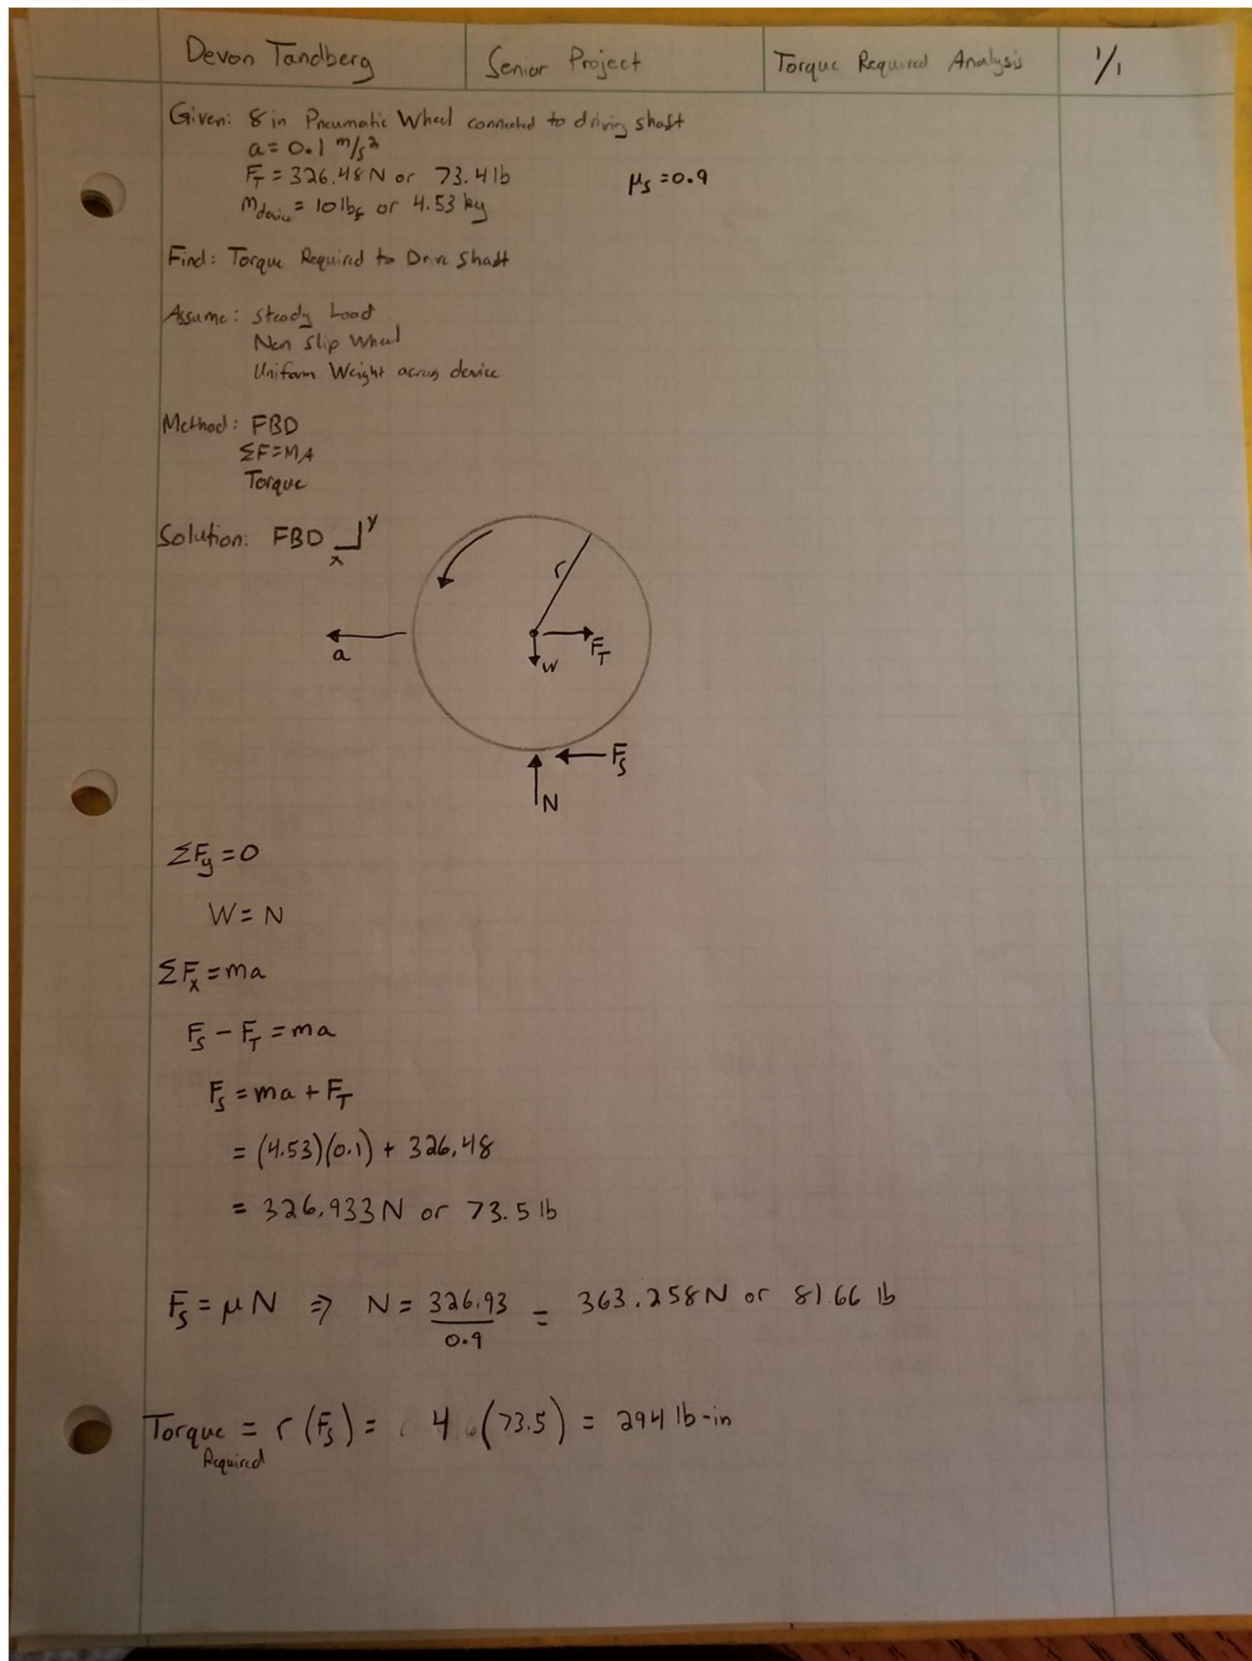 Devon Tandberg
Senior Project
Torque Required Analysis
1/1
Given: 8 in Pneumatic Wheel connected to driving shaft
a = 0.1 m/s²
F_T = 326.48 N or 73.4 lb
μ_s = 0.9
m_device = 10 lbf or 4.53 kg
Find: Torque Required to Drive Shaft
Assume: Steady Load
Non Slip Wheel
Uniform Weight across device
Method: FBD
ΣF=MA
Torque
Solution: FBD
y
x
r
a
F_T
W
F_S
N
ΣF_y = 0
W = N
ΣF_x = ma
F_S - F_T = ma
F_S = ma + F_T
= (4.53)(0.1) + 326.48
= 326.933 N or 73.5 lb
F_S = μ N ⇒ N = 326.93/0.9 = 363.258 N or 81.66 lb
Torque = r (F_S) = 4 (73.5) = 294 lb-in
Required